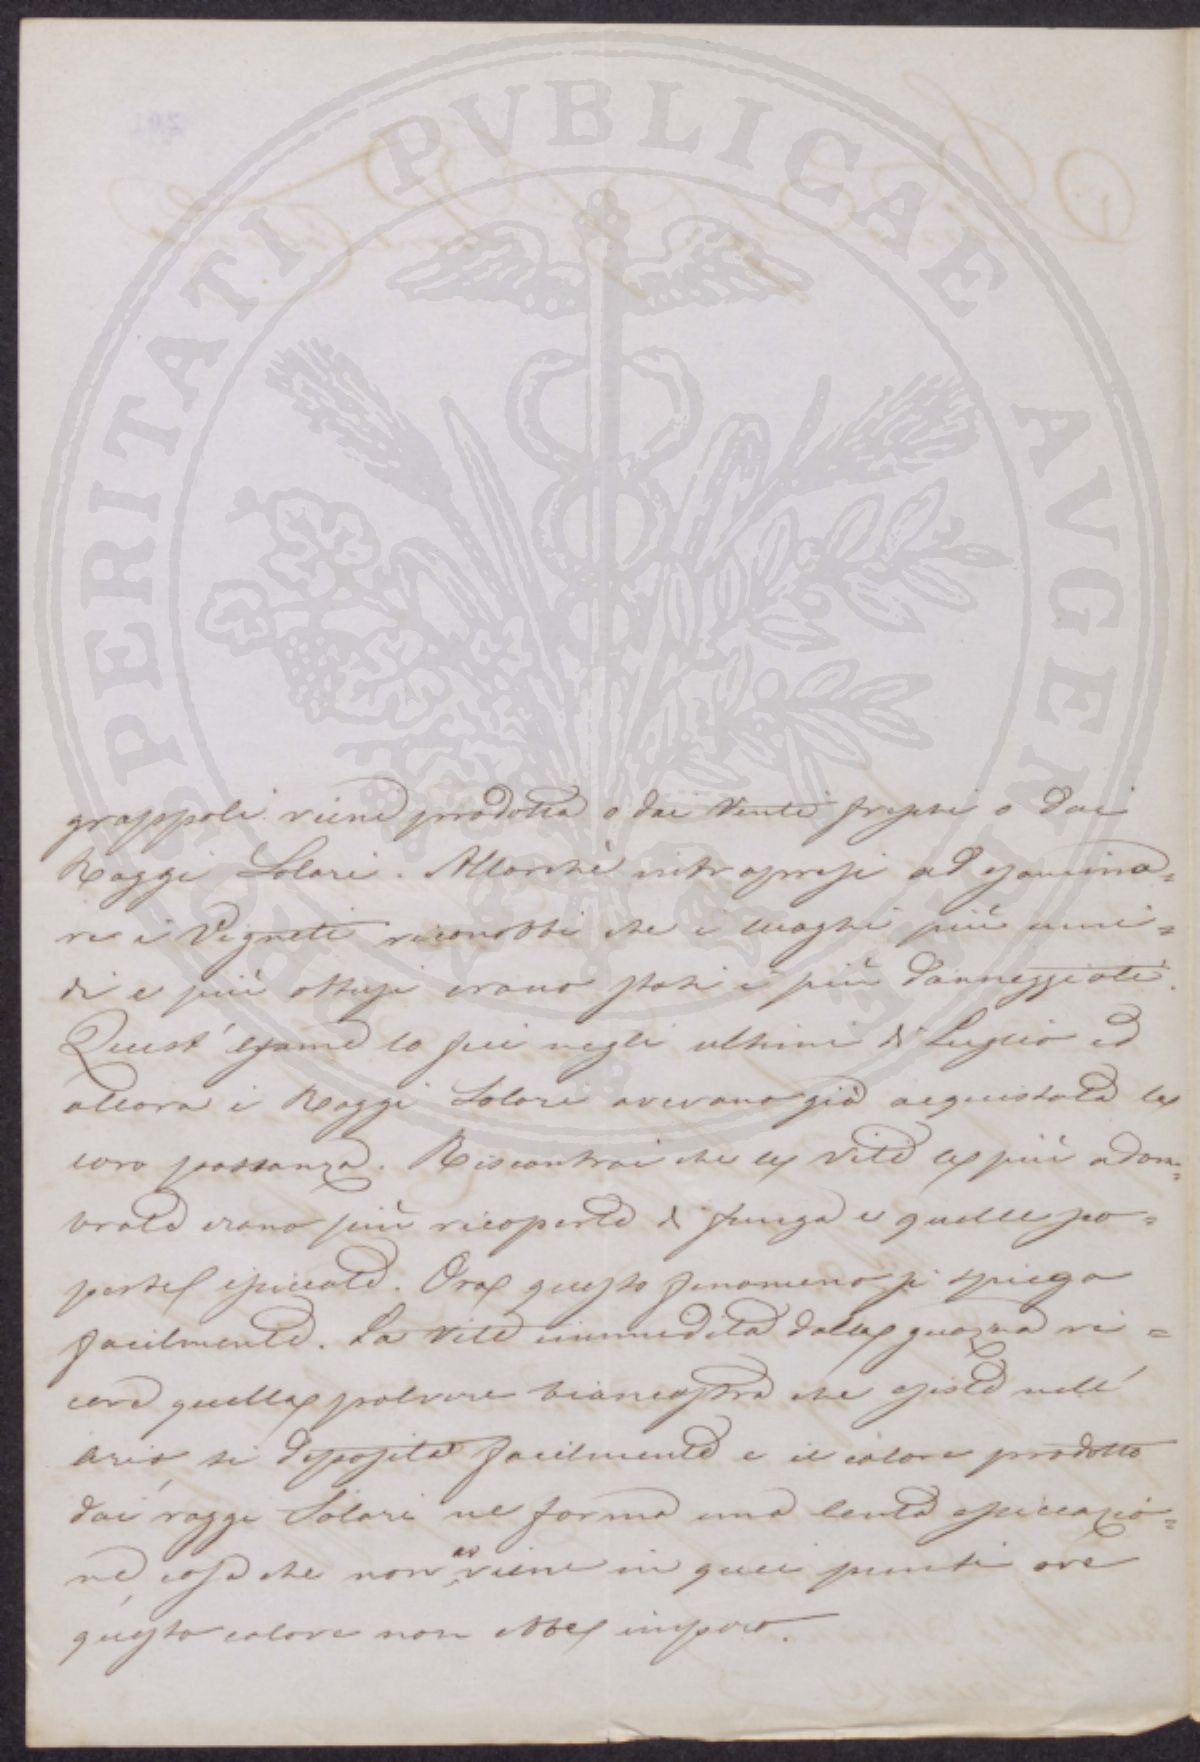 PROSPERITATI PVBLICAE AVGENDAE
grappoli viene prodotta o dai Venti freschi o dai
Raggi Solari. Allorchè intrapresi ad esamina=
re i Vigneti riconobbi che i luoghi più umi=
di e più ottusi erano stati i più danneggiati.
Quest' esame lo feci negli ultimi di Luglio ed
allora i Raggi Solari avevano già acquistata la
loro possanza. Riscontrai che le Vite le più adom=
brate erano più ricoperte di funga e quelle es=
poste essiccate. Ora questo fenomeno si spiega
facilmente. La Vite inumidita dalla guazza ri=
ceve quella polvere biancastra che esiste nell'
aria si deposita facilmente e il calore prodotto
dai raggi Solari ne forma una lenta essiccazio=
ne cosa che non avviene in quei punti ove
questo calore non ebbe impero.